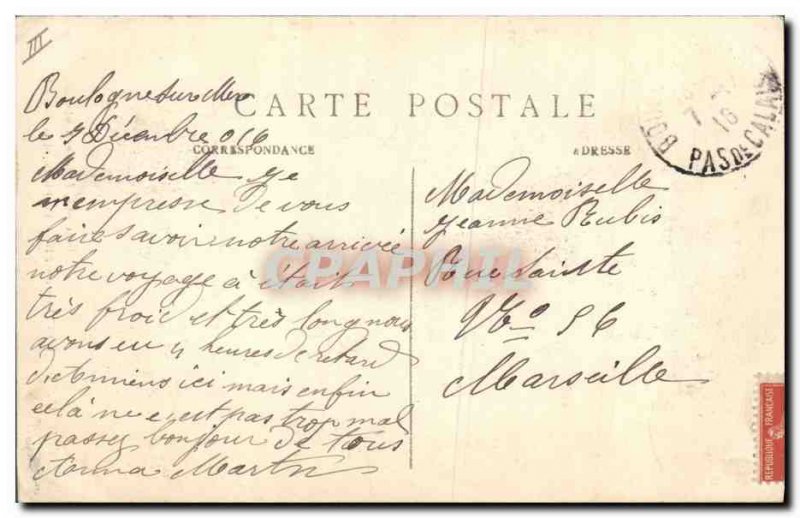 III
Boulogne sur Mer
CARTE POSTALE
le 7 Décembre 916
CORRESPONDANCE
ADRESSE
Mademoiselle je
m'empresse de vous
faire savoir notre arrivée
notre voyage à était
très froid et très long nous
avons eu 4 heures de retard
ici mais enfin
celà ne c'est pas trop mal
passez bonjour de tous
Anna Martin
Mademoiselle
Jeanne Rubis
Rue Sainte
No 56
Marseille
7
16
PAS DE CALAIS
CPAPHIL
REPUBLIQUE FRANÇAISE